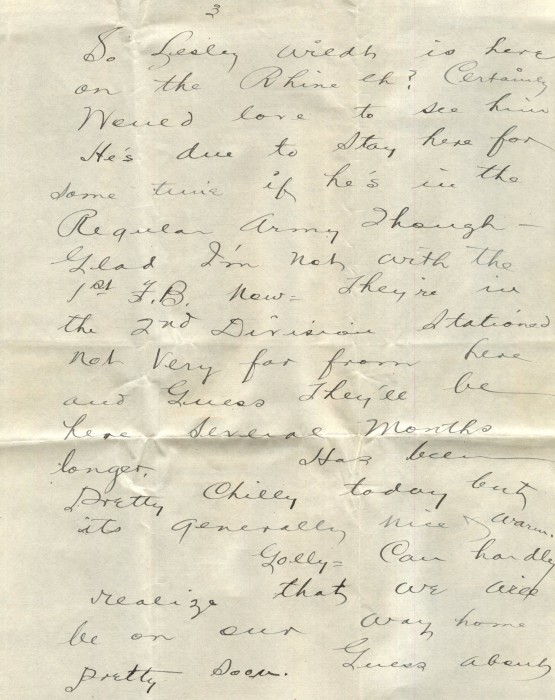 3
So Lesley is here
on the Rhine eh? Certainly
Would love to see him
He's due to stay here for
some time if he's in the
Regular Army though -
Glad I'm not with the
1st F.B. now = They're in
the 2nd Division stationed
not very far from here
and Guess They'll be
here several Months
longer. Has been
pretty chilly today but
its generally nice & warm.
Golly = Can hardly
realize that we will
be on our way home
pretty soon. Guess about